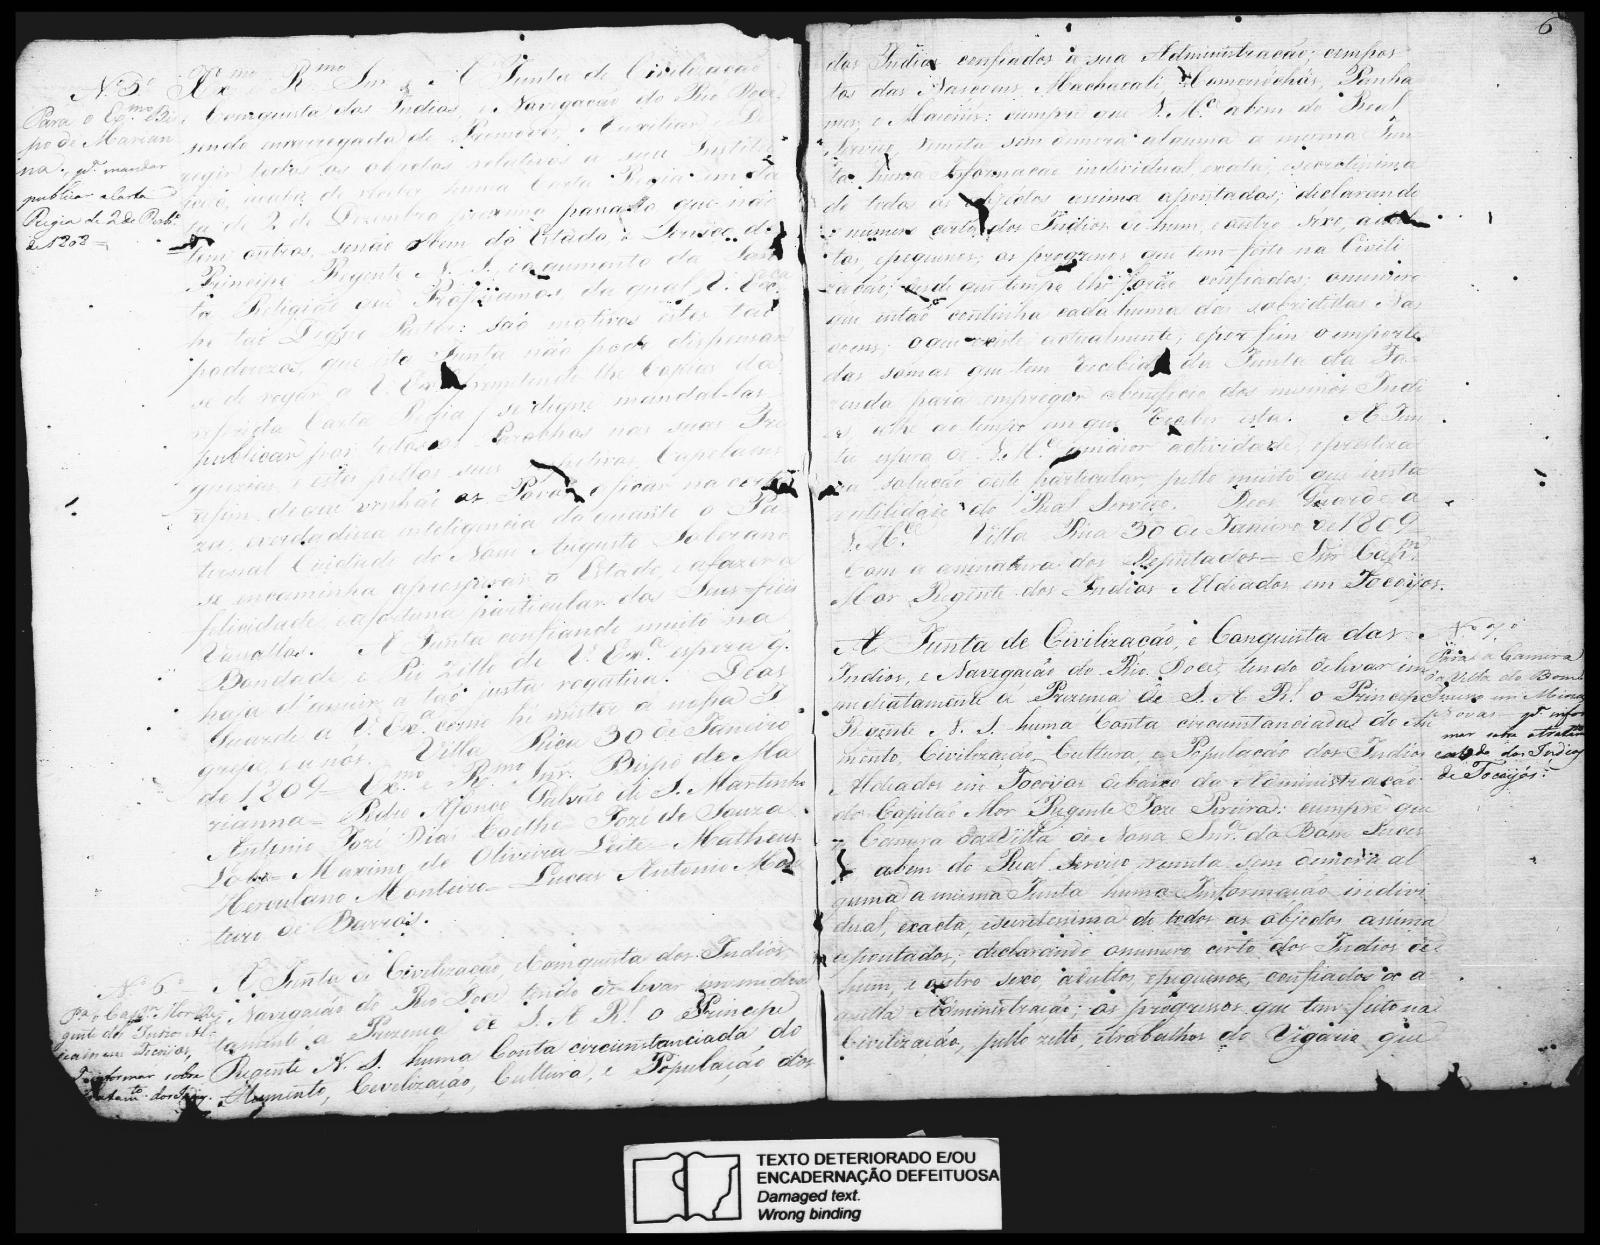 N.º 5º
Para o Ex.mo Bis
po de Marian
na, p.ª mandar
publicar a Carta
Regia de 2 de Dezb.º
de 1808 =
Ex.mo R.mo Snr. A Junta de Civilizacaõ
Conquista dos Indios, e Navegaçaõ do Rio Doce,
sendo encarregada de Promover, Auxiliar e De
regir todos os objectos relativos a sua Institui
çaõ, acaba de receber huma Carta Regia em da
ta de 2 de Dezembro proximo passado que naõ
tem outros, senaõ o bem do Estado, o Serviço do
Principe Regente N. S., e augmento da San
ta Religiaõ que Professamos, da qual V. Ex.cia
he taõ Digno Pastor: saõ motivos estes taõ
poderozos, que esta Junta naõ pode dispensar
se de rogar a V. Ex.cia remetendo lhe Copias da
referida Carta Regia, se digne mandal-las
publicar por todos os Parochos nas suas Fre
guezias, e estes pellos seus Capelaens
afim de que venhaõ os Povos e ficar na certe
za, e verdadeira inteligencia do quanto o Pa
ternal Cuidado do Nosso Augusto Soberano
se encaminha a prosperar o Estado e a fazer a
felicidade, e a fortuna particular dos Seus fieis
Vassallos. A Junta confiando muito na
Bondade, e Pio Zello de V. Ex.ª espera q.
haja d'annuir a taõ justa rogativa. Deos
Guarde a V. Ex.ª como he mister a nossa I
greja, e a nós. Villa Rica 30 de Janeiro
de 1809 = Ex.mo e R.mo Snr. Bispo de Ma
rianna = Pedro Afonço Galvaõ de S. Martinho
Antonio Jozé Dias Coelho = Jozé de Souza
Lobo = Maximo de Oliveira Leite = Matheus
Herculano Monteiro = Lucas Antonio Mon
teiro de Barros.
N.º 6º
P.ª o Cap.m Mor Re
gente dos Indios Al
deados em Tocoiós,
p.ª informar sobre
o tratam.to dos Indios.
A Junta de Civilizaçaõ, e Comquista dos Indios,
e Navegaçaõ do Rio Doce, tendo de levar immedia
tamente a Prezença de S. A. R.l o Principe
Regente N. S. huma Conta circunstanciada do
Augmento, Civelizaçaõ, Cultura, e Populaçaõ dos
6
dos Indios confiados a sua Administracaõ; compos
tos das Nascoens Machacali, Comonochós, Panha
mes, e Maconis: cumpre que V. M.ce a bem do Real
Serviço, remeta sem demora alguma a mesma Jun
ta huma Informacaõ individual, exata, e sercetissima
de todos os objectos assima apontados; declarando
o numero certo dos Indios de hum, e outro sexo, adul
tos, e pequenos; os progressos que tem feito na Civili
zaçaõ; desde que tempo lhe foraõ confiados; o numero
que entaõ continha cada huma das sobreditas Nas
coens; o que existe actualmente; e por fim o importe
das somas que tem recebido da Junta da Fa
zenda para empregar a beneficio dos mesmos Indi
os, athe ao tempo em que receber esta. A Jun
ta espera de V. M.ce a maior actividade, e prestiza
na soluçaõ deste particular, pello muito que insta
a utilidade do Real Serviço. Deos Guarde a
V. M.ce Villa Rica 30 de Janeiro de 1809
Com a assinatura dos Deputados = Snr. Cap.m
Mor Regente dos Indios Aldeados em Tocoiyos.
N.º 7º
Para a Camera
da Villa do Bom
Sucesso em Minas
Novas = p.ª infor
mar sobre o tratam.to
estado dos Indios
de Tocoyós.
A Junta de Civilizaçaõ, e Conquista dos
Indios, e Navegaçaõ do Rio Doce, tendo de levar im
mediatamente a Prezença de S. A. R.l o Principe
Regente N. S. huma Conta circunstanciada do Au
mento, Civilizaçaõ, Cultura, e Populacaõ dos Indios
Aldeados em Tocoios debaixo da Administraçaõ
do Capitaõ Mor Regente Jozé Pereira: cumpre que
a Camera da Villa de Nossa Snr.ª do Bom Suces
so a bem do Real Serviço remeta sem demora al
guma a mesma Junta huma Informaçaõ indivi
dual, exacta, e sircetissima de todos os objectos assima
apontados; declarando o numero certo dos Indios de
hum, e outro sexo, adultos, e pequenos, confiados a
aquella Administraçaõ; os progressos que tem feito na
Civilizaçaõ, pello zello, e trabalhos do Vigario que
TEXTO DETERIORADO E/OU
ENCADERNAÇÃO DEFEITUOSA
Damaged text.
Wrong binding